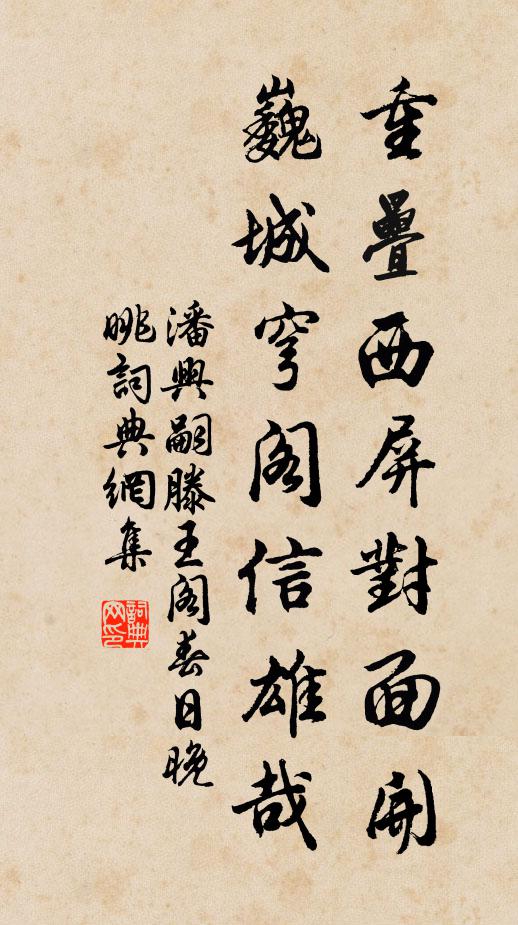 重疊西屏對面開
巍城穹閣信雄哉
潘興嗣滕王閣春日晚
眺詞典網集
詞典
网印